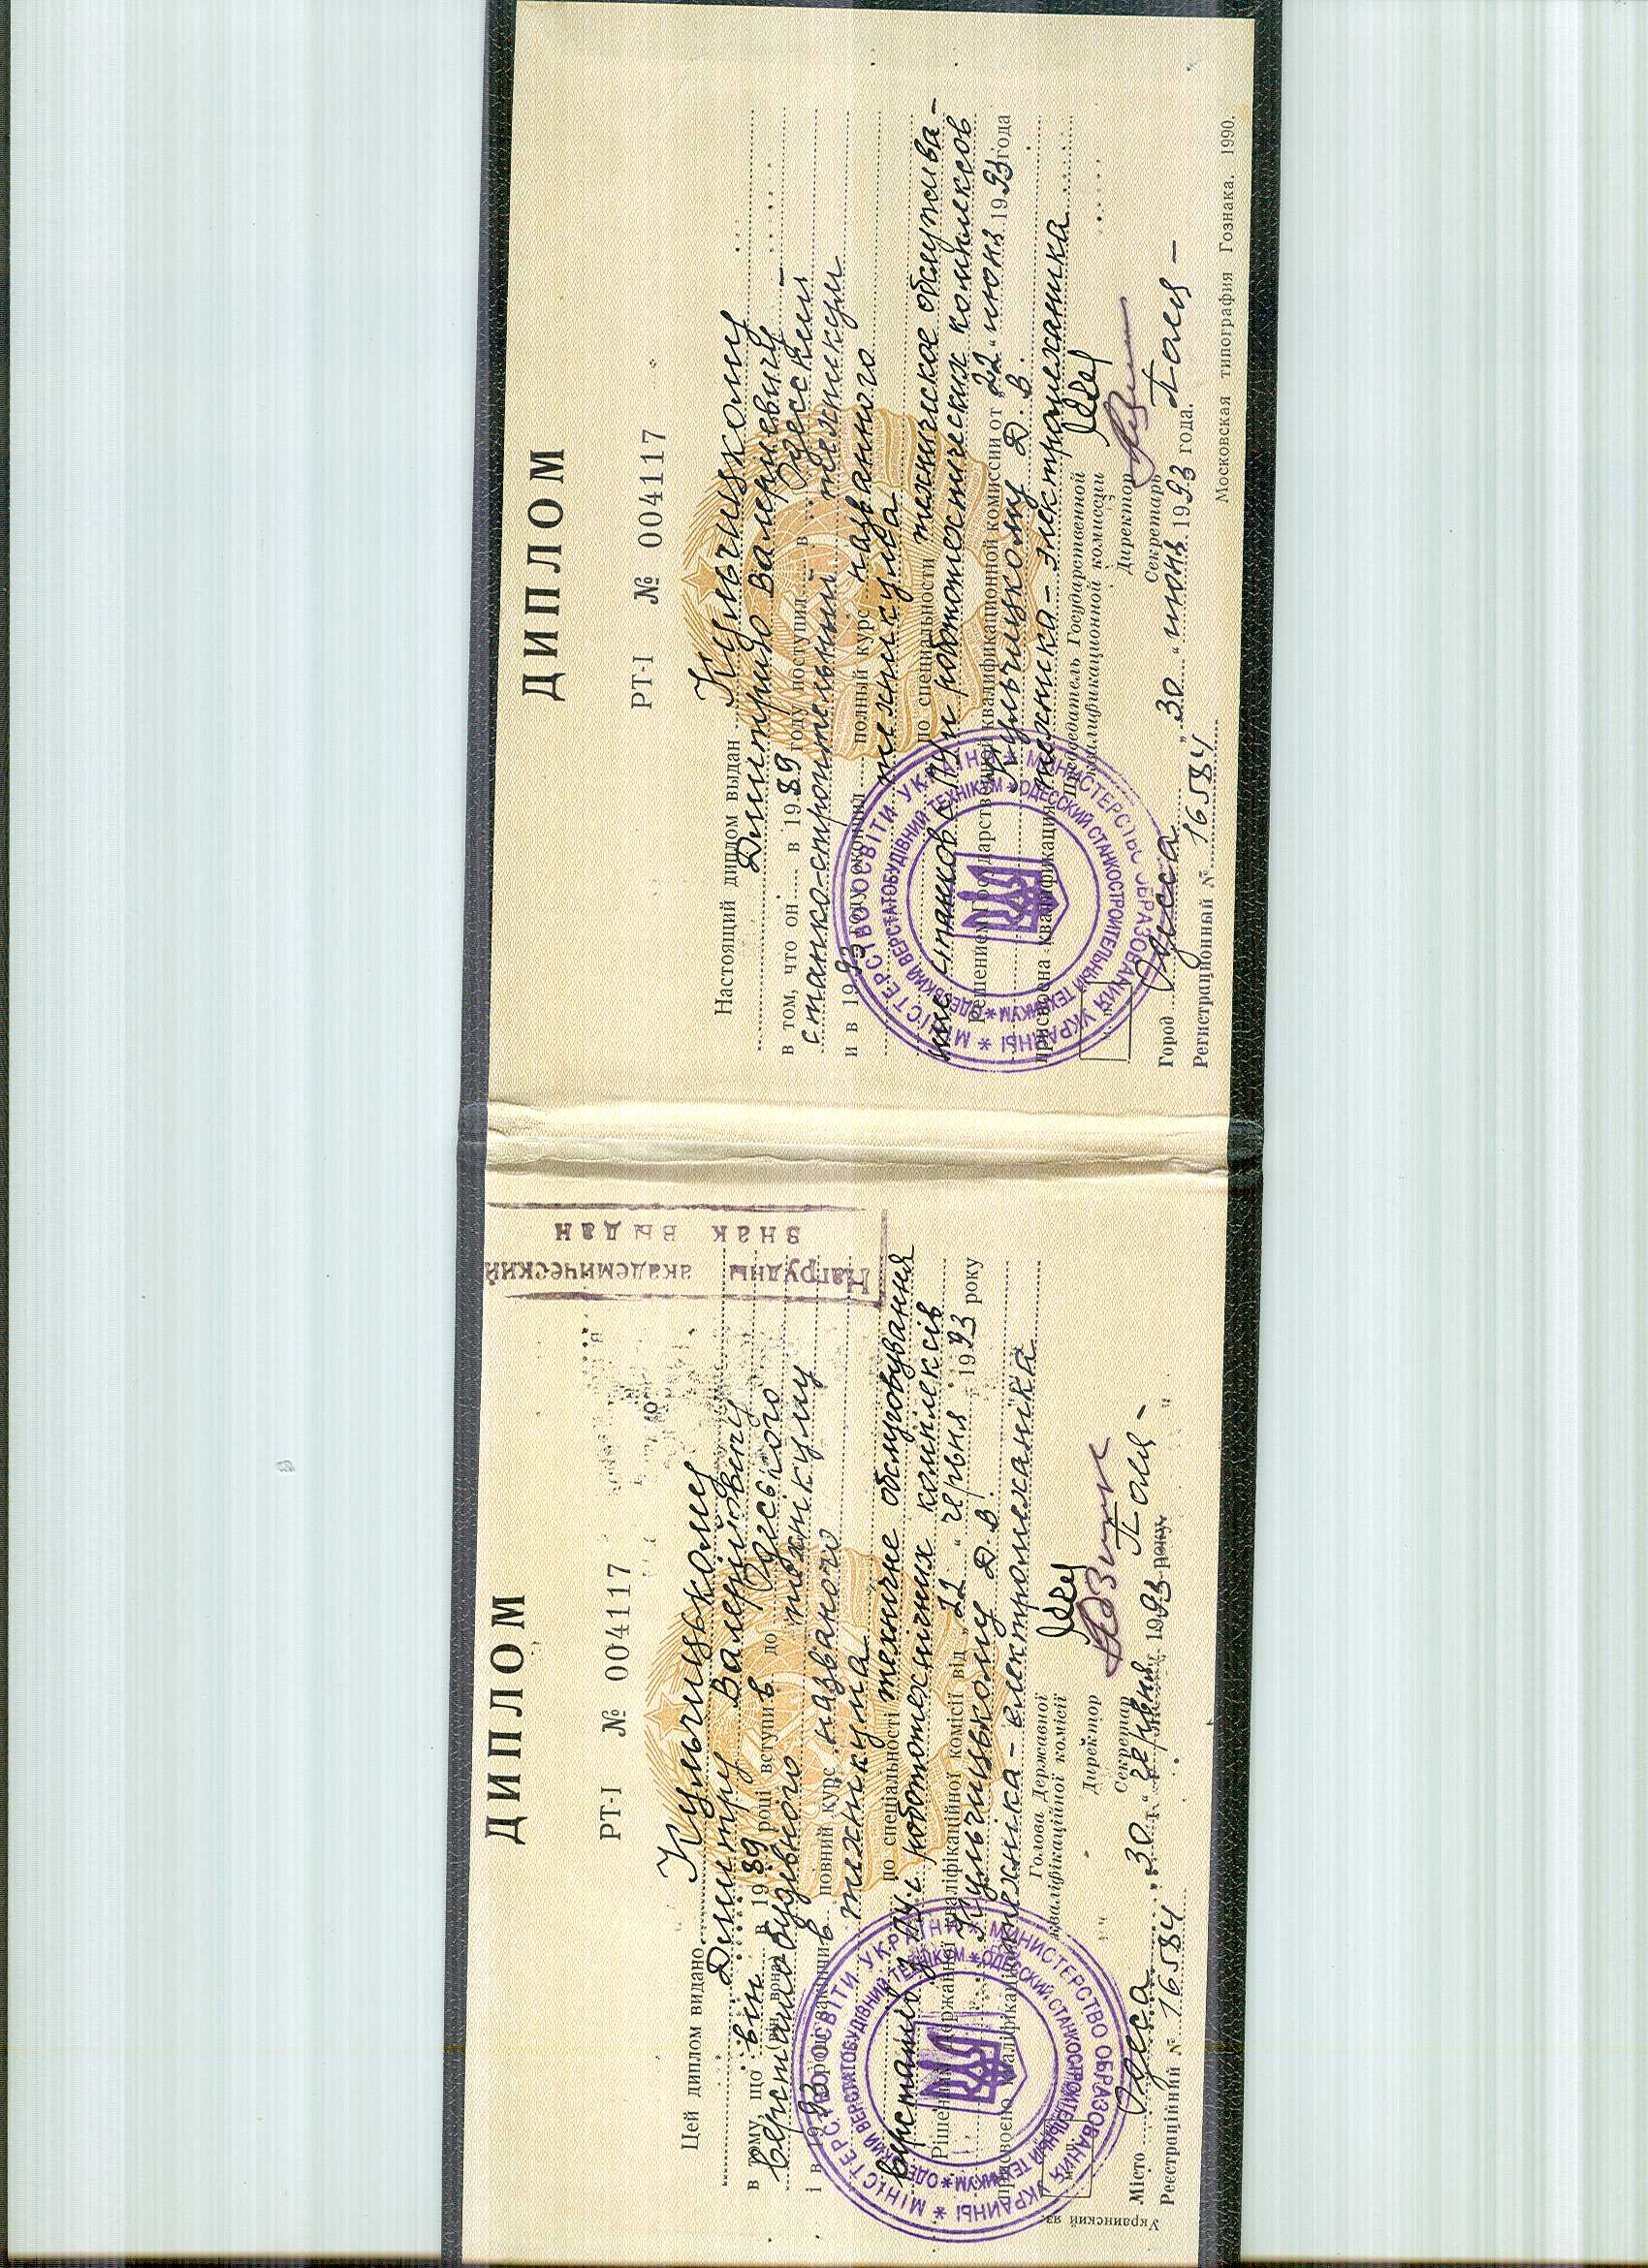 ДИПЛОМ
РТ-I № 004117
Цей диплом видано Кульчицькому
Дмитру Валерійовичу
в тому, що він в 1989 році вступив до Одеського
верстатобудівного технікуму
і в 1993 році закінчив повний курс названого
технікума
по спеціальності технічне обслуговування
верстатів з ПУ і робототехнічних комплексів
Рішенням Державної кваліфікаційної комісії від „22“ червня 1993 року
Кульчицькому Д. В.
присвоєно кваліфікацію техніка-електромеханіка
Голова Державної
кваліфікаційної комісії
Директор
Секретар
Місто Одеса „30“ червня 1993 року
Реєстраційний № 16584
Украинский яз.
Нагрудный академический
знак выдан
МІНІСТЕРСТВО ОСВІТИ УКРАЇНИ * МИНИСТЕРСТВО ОБРАЗОВАНИЯ УКРАИНЫ *
ОДЕСЬКИЙ ВЕРСТАТОБУДІВНИЙ ТЕХНІКУМ * ОДЕССКИЙ СТАНКОСТРОИТЕЛЬНЫЙ ТЕХНИКУМ *
ДИПЛОМ
РТ-I № 004117
Настоящий диплом выдан Кульчицкому
Дмитрию Валериевичу
в том, что он в 1989 году поступил в Одесский
станко-строительный техникум
и в 1993 году окончил полный курс названного
техникума
по специальности техническое обслужива-
ние станков с ПУ и робототехнических комплексов
Решением Государственной квалификационной комиссии от „22“ июня 1993 года
Кульчицкому Д. В.
присвоена квалификация техника-электромеханика
Председатель Государственной
квалификационной комиссии
Директор
Секретарь
Город Одесса „30“ июня 1993 года.
Регистрационный № 16584
Московская типография Гознака. 1990.
МІНІСТЕРСТВО ОСВІТИ УКРАЇНИ * МИНИСТЕРСТВО ОБРАЗОВАНИЯ УКРАИНЫ *
ОДЕСЬКИЙ ВЕРСТАТОБУДІВНИЙ ТЕХНІКУМ * ОДЕССКИЙ СТАНКОСТРОИТЕЛЬНЫЙ ТЕХНИКУМ *